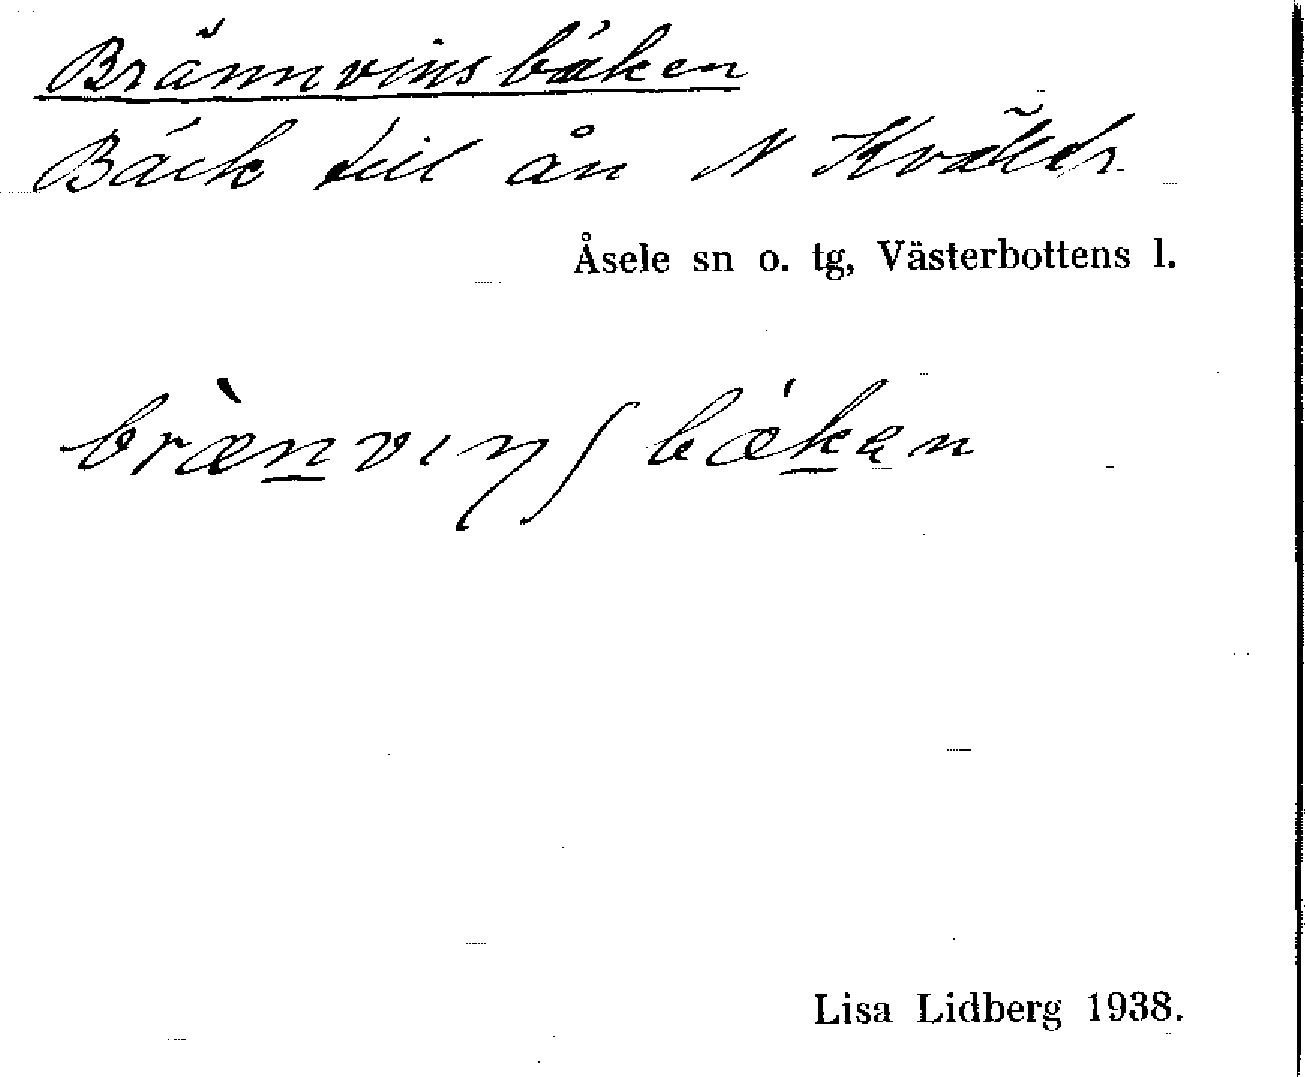 Brännvinsbäken
Bäck till ån N Kvälltr.
Åsele sn o. tg, Västerbottens l.
brænviŋʃbæken
Lisa Lidberg 1938.